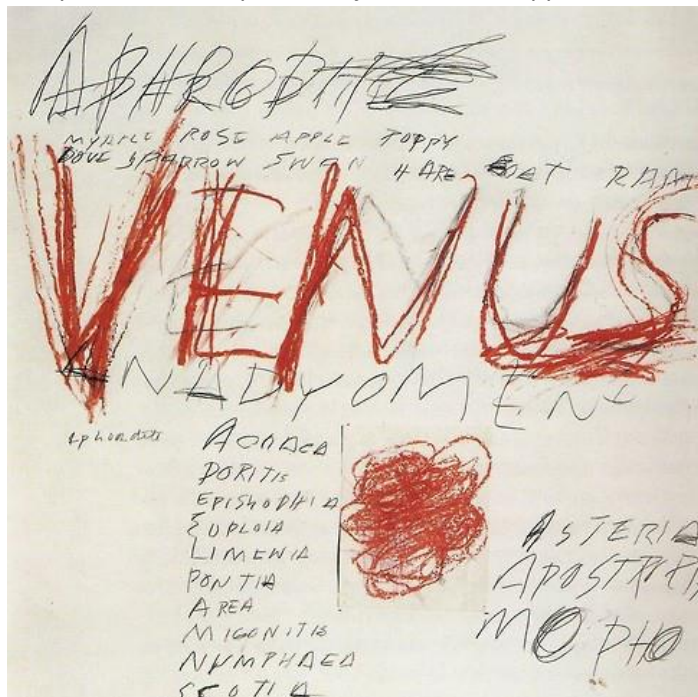 APHRODITE
MYRTLE ROSE APPLE POPPY
DOVE SPARROW SWAN HARE GOAT RAM
VENUS
ANADYOMENE
Aphordite
DORITIS
EPISKOPHIA
EUPLOIA
LIMENIA
PONTIA
AREA
MIGONITIS
NYMPHAEA
SCOTIA
ASTERIA
APOSTRPH
MOPHO